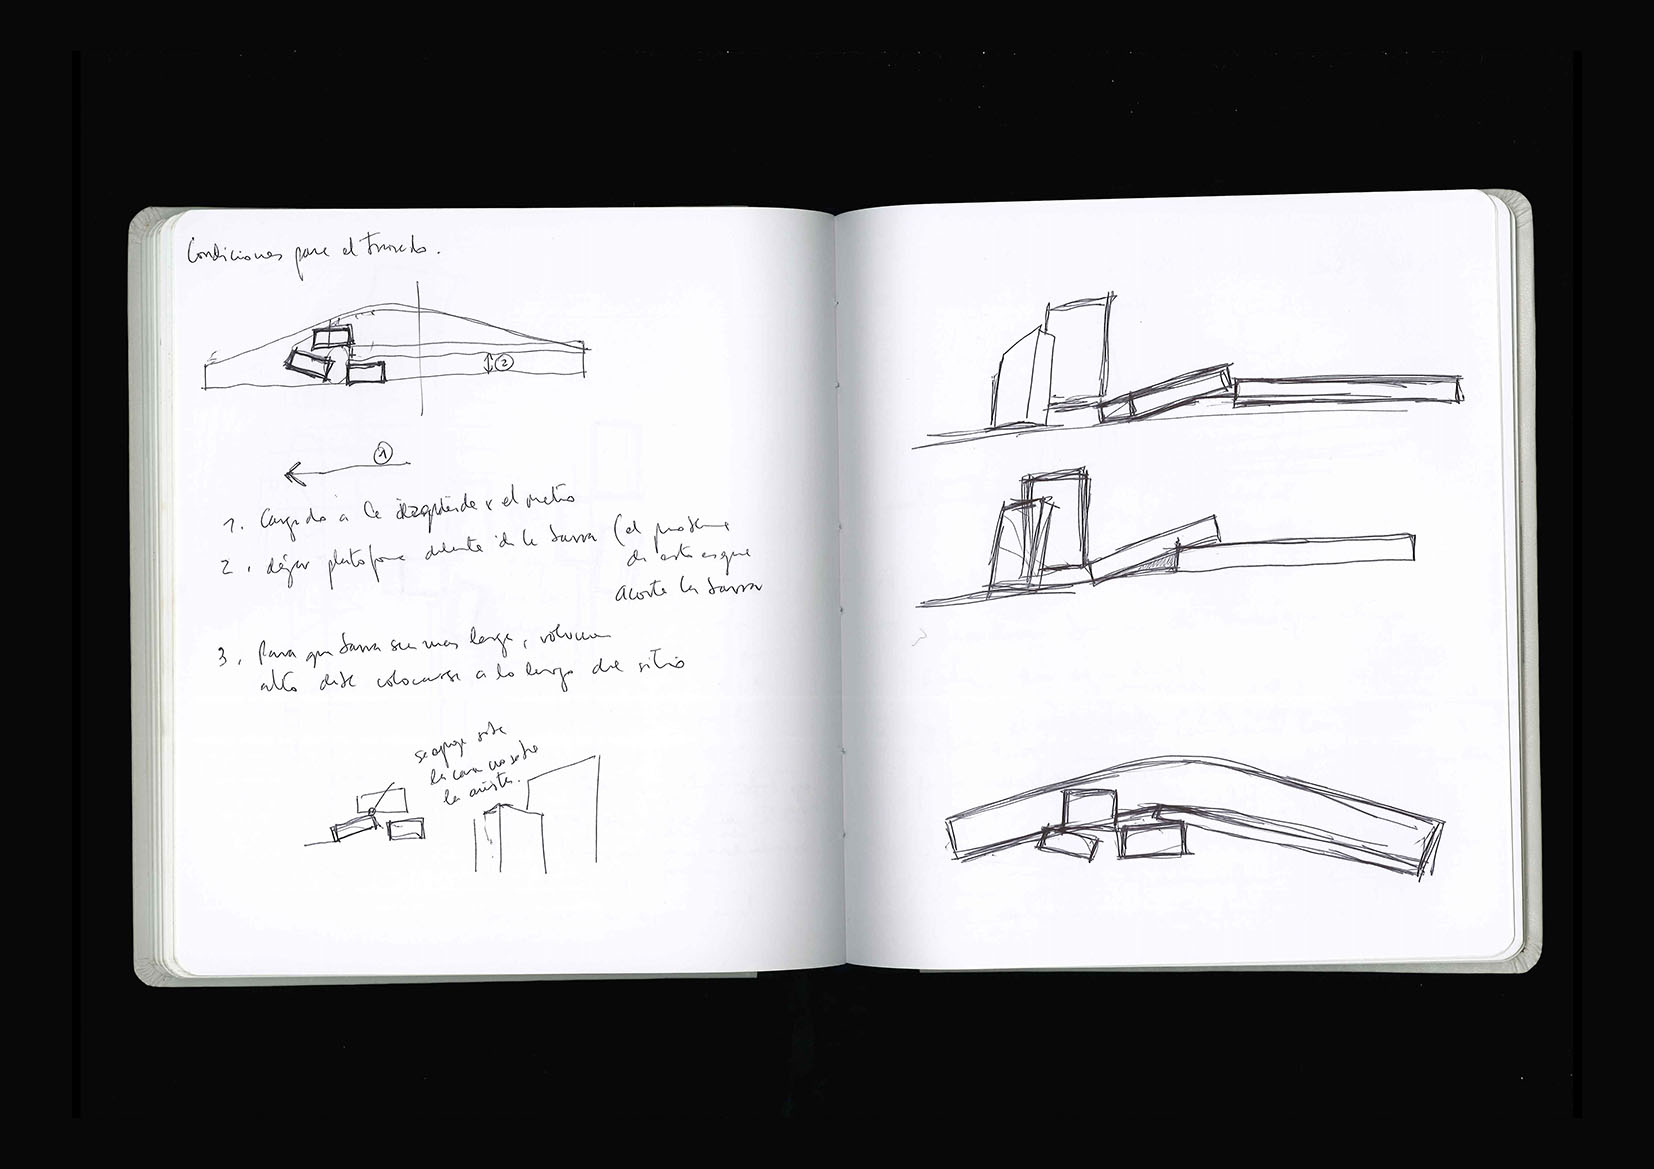 Condiciones para el trazado.
2
1
1. Cargado a la izquierda x el metro
2. dejar plataforma delante de la barra (el problema
de esto es que
acorta la barra
3. Para que barra sea mas larga, volumen
alto debe colocarse a lo largo del sitio
se apoya sobre
la cara no sobre
la arista.